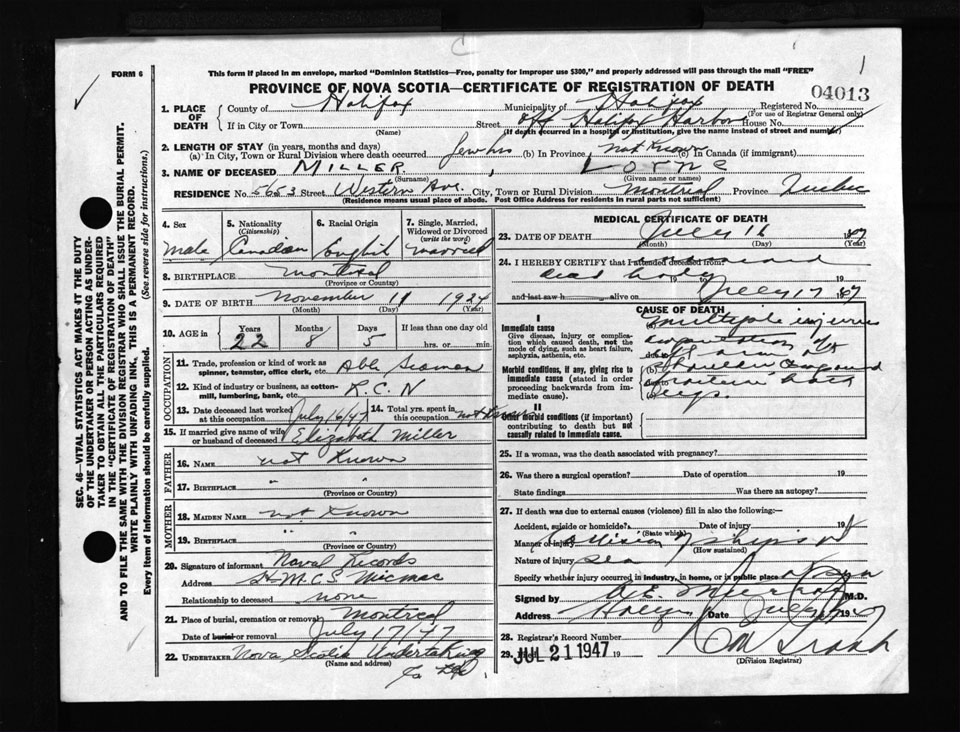 C
FORM 6
This form if placed in an envelope, marked "Dominion Statistics—Free, penalty for improper use $300," and properly addressed will pass through the mail "FREE"
PROVINCE OF NOVA SCOTIA—CERTIFICATE OF REGISTRATION OF DEATH
04013
1. PLACE OF DEATH
County of Halifax Municipality of Halifax Registered No.
(For use of Registrar General only)
If in City or Town Street off Halifax Harbour House No.
(Name) (If death occurred in a hospital or institution, give the name instead of street and number)
2. LENGTH OF STAY (in years, months and days)
(a) In City, Town or Rural Division where death occurred few hrs (b) In Province not Known (c) In Canada (if immigrant)
3. NAME OF DECEASED MILLER, Lorne
(Surname) (Given name or names)
RESIDENCE No. 5653 Street Western Ave. City, Town or Rural Division Montreal Province Quebec
(Residence means usual place of abode. Post Office Address for residents in rural parts not sufficient)
4. Sex male
5. Nationality (Citizenship) Canadian
6. Racial Origin English
7. Single, Married, Widowed or Divorced (write the word) married
8. BIRTHPLACE Montreal
(Province or Country)
9. DATE OF BIRTH November 11 1924
(Month) (Day) (Year)
10. AGE in Years Months Days If less than one day old
22 8 5 hrs. or min.
OCCUPATION
11. Trade, profession or kind of work as spinner, teamster, office clerk, etc. Able Seaman
12. Kind of industry or business, as cotton-mill, lumbering, bank, etc. R.C.N
13. Date deceased last worked at this occupation July 16/47
14. Total yrs. spent in this occupation not Known
15. If married give name of wife or husband of deceased Elizabeth Miller
FATHER
16. NAME not Known
17. BIRTHPLACE " "
(Province or Country)
MOTHER
18. MAIDEN NAME not Known
19. BIRTHPLACE " "
(Province or Country)
20. Signature of informant Naval Records
Address H.M.C.S Micmac
Relationship to deceased none
21. Place of burial, cremation or removal Montreal
Date of burial or removal July 17/47
22. UNDERTAKER Nova Scotia Undertaking
(Name and address)
Co Ltd
MEDICAL CERTIFICATE OF DEATH
23. DATE OF DEATH July 16 1947
(Month) (Day) (Year)
24. I HEREBY CERTIFY that I attended deceased from
dead body 19
and last saw h alive on July 17 1947
CAUSE OF DEATH
I
Immediate cause
Give disease, injury or complication which caused death, not the mode of dying, such as heart failure, asphyxia, asthenia, etc.
Multiple injuries
amputation of
left arm at
Morbid conditions, if any, giving rise to immediate cause (stated in order proceeding backwards from immediate cause).
(b) shoulder compound
fracture both
legs.
II
Other morbid conditions (if important) contributing to death but not causally related to immediate cause.
25. If a woman, was the death associated with pregnancy?
26. Was there a surgical operation? Date of operation 19
State findings Was there an autopsy?
27. If death was due to external causes (violence) fill in also the following:—
Accident, suicide or homicide? Date of injury 19
(State which)
Manner of injury Collision of ships
(How sustained)
Nature of injury sea
Specify whether injury occurred in industry, in home, or in public place at sea
Signed by M.D.
Address Halifax Date July 19
28. Registrar's Record Number
29. JUL 21 1947 19
(Division Registrar)
SEC. 46—VITAL STATISTICS ACT MAKES IT THE DUTY
OF THE UNDERTAKER OR PERSON ACTING AS UNDER-
TAKER TO OBTAIN ALL THE PARTICULARS REQUIRED
IN THE "CERTIFICATE OF REGISTRATION OF DEATH"
AND TO FILE THE SAME WITH THE DIVISION REGISTRAR WHO SHALL ISSUE THE BURIAL PERMIT.
WRITE PLAINLY WITH UNFADING INK, THIS IS A PERMANENT RECORD.
Every item of information should be carefully supplied. (See reverse side for instructions.)